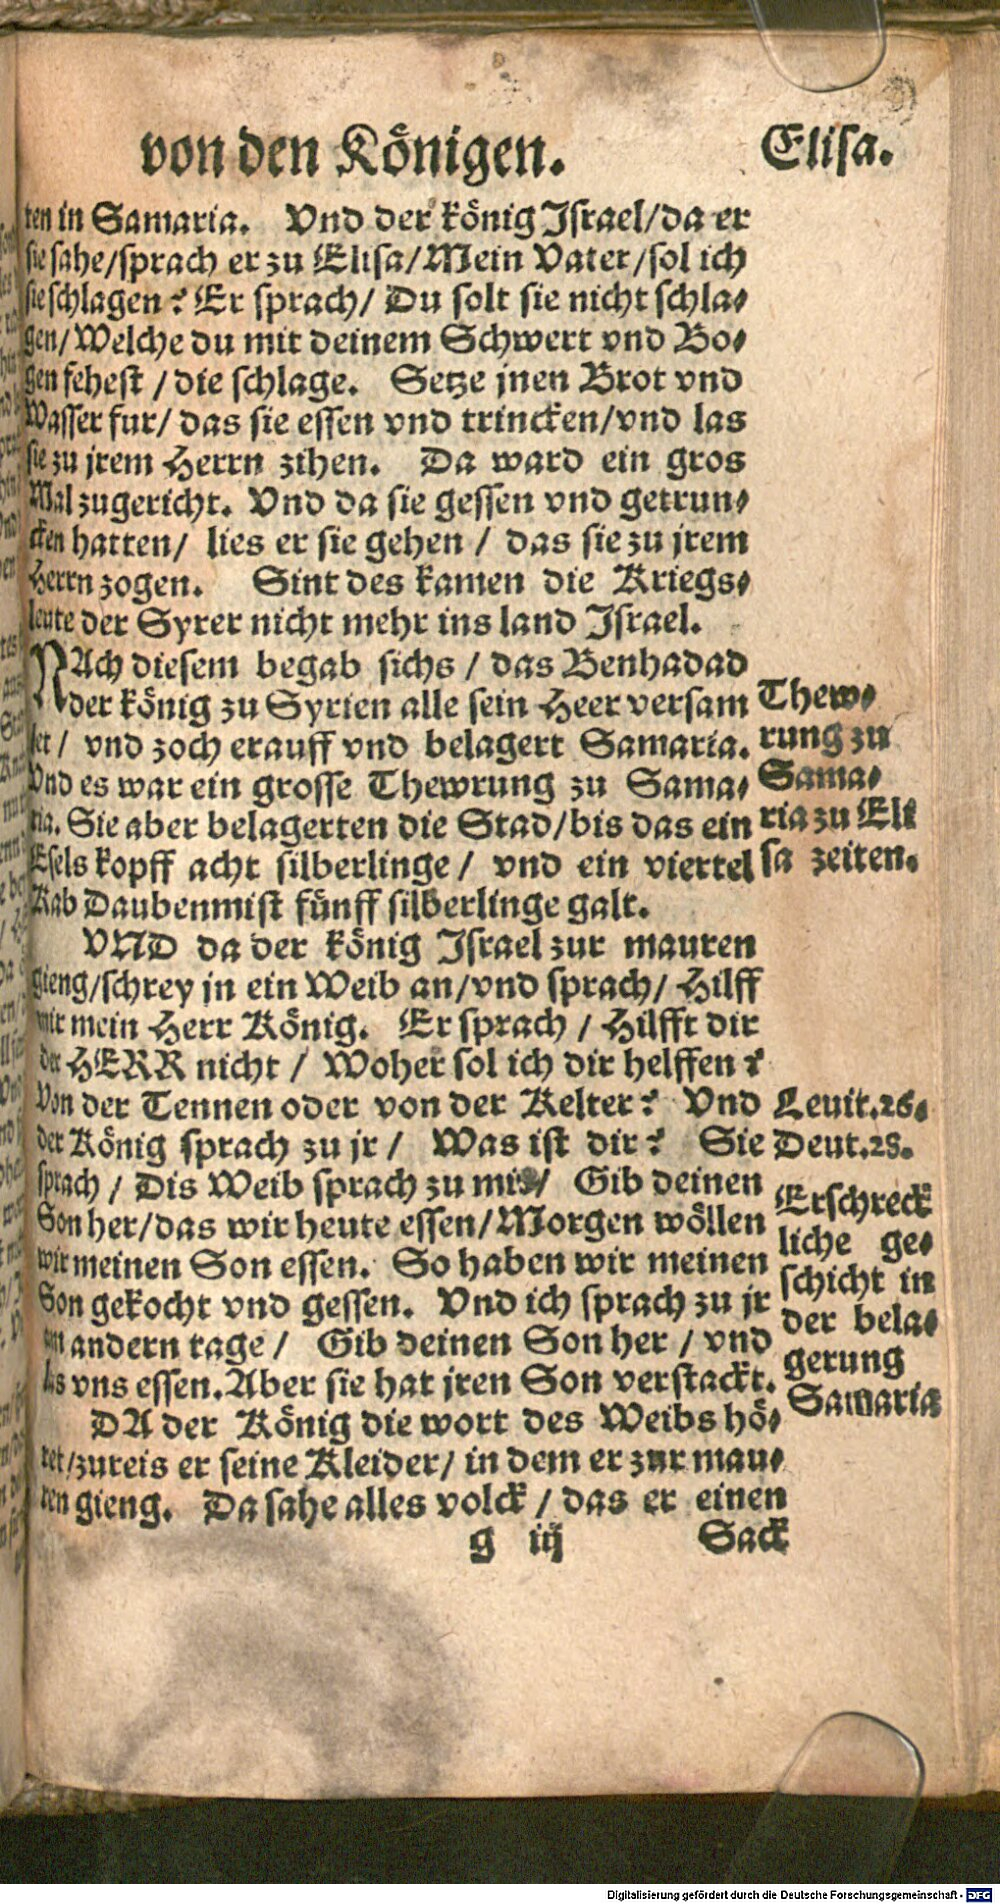 von den Königen.
Elisa.
ten in Samaria. Vnd der könig Jsrael/da er
sie sahe/sprach er zu Elisa/Mein Vater/sol ich
sie schlagen? Er sprach/ Du solt sie nicht schla-
gen/Welche du mit deinem Schwert vnd Bo-
gen fehest /die schlage. Setze jnen Brot vnd
Wasser fur/ das sie essen vnd trincken/vnd las
sie zu jrem Herrn zihen. Da ward ein gros
Mal zugericht. Vnd da sie gessen vnd getrun-
cken hatten/ lies er sie gehen / das sie zu jrem
Herrn zogen. Sint des kamen die Kriegs-
leute der Syrer nicht mehr ins land Jsrael.
NAch diesem begab sichs / das Benhadad
der könig zu Syrien alle sein Heer versam
let/ vnd zoch erauff vnd belagert Samaria.
Vnd es war ein grosse Thewrung zu Sama-
ria. Sie aber belagerten die Stad/bis das ein
Esels kopff acht silberlinge/ vnd ein viertel
Kab Daubenmist fünff silberlinge galt.
Thew-
rung zu
Sama-
ria zu Eli
sa zeiten.
VND da der könig Jsrael zur mauren
gieng/schrey jn ein Weib an/vnd sprach/ Hilff
mir mein Herr König. Er sprach / Hilfft dir
der HERR nicht / Woher sol ich dir helffen?
Von der Tennen oder von der Kelter? Vnd
der König sprach zu jr / Was ist dir? Sie
sprach / Dis Weib sprach zu mir/ Gib deinen
Son her/das wir heute essen/Morgen wöllen
wir meinen Son essen. So haben wir meinen
Son gekocht vnd gessen. Vnd ich sprach zu jr
am andern tage / Gib deinen Son her / vnd
las vns essen. Aber sie hat jren Son versteckt.
Leuit.26.
Deut.28.
Erschreck
liche ge-
schicht in
der bela-
gerung
Samaria
DA der König die wort des Weibs hö-
ret/zureis er seine Kleider/ in dem er zur mau-
ren gieng. Da sahe alles volck / das er einen
g iij
Sack
Digitalisierung gefördert durch die Deutsche Forschungsgemeinschaft - DFG